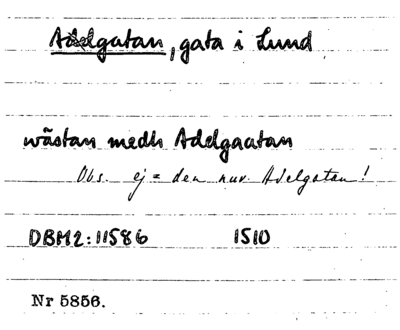 Adelgatan, gata i Lund
wästan medh Adelgaatan
Obs. ej = den nuv. Adelgatan!
DBM2:11586 1510
Nr 5856.